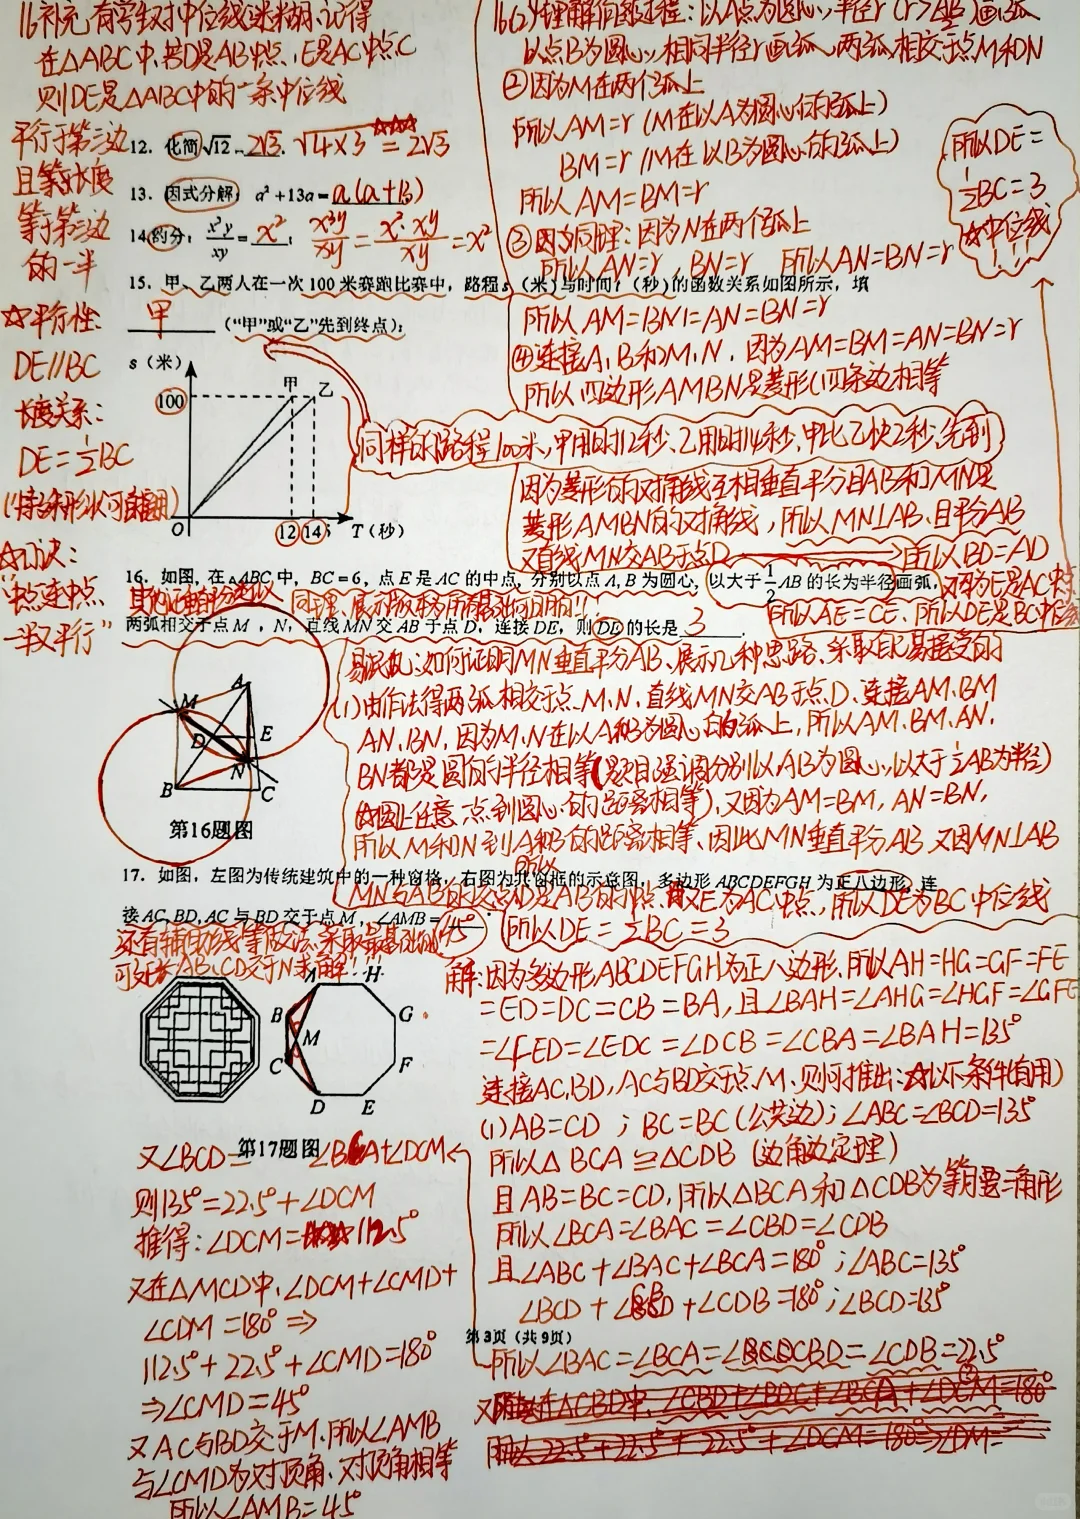 16补充:有学生对中位线迷糊、记得
在△ABC中,若D是AB中点,E是AC中点
则DE是△ABC中的一条中位线
平行于第三边
且等长度
等于第三边
的一半
☆平行性:
DE//BC
长度关系:
DE=½BC
☆口诀:
"中点连中点、
一半又平行"
12. 化简√12=2√3. √4×3=2√3
13. 因式分解:a²+13a=a(a+13)
14. 约分:x³y/xy=x²; x³y/xy=x²·xy/xy=x²
15. 甲、乙两人在一次100米赛跑比赛中,路程s(米)与时间t(秒)的函数关系如图所示,填
甲(“甲”或“乙”先到终点);
s(米)
100
甲
乙
O
12
14
T(秒)
同样的路程100米,甲用时12秒、乙用时14秒,甲比乙快2秒;先到
以点B为圆心,相同半径r画弧,两弧相交于点M和N
②因为M在两个弧上
所以AM=r(M在以A为圆心的弧上)
BM=r(M在以B为圆心的弧上)
所以AM=BM=r
③因为同理:因为N在两个弧上
所以AN=r,BN=r 所以AN=BN=r
所以AM=BM=AN=BN=r
④连接A、B和M、N,因为AM=BM=AN=BN=r
所以四边形AMBN是菱形(四条边相等
因为菱形的对角线互相垂直平分且AB和MN是
菱形AMBN的对角线,所以MN⊥AB,且平分AB
又直线MN交AB于点D
所以BD=AD
又因为E是AC中点
所以AE=CE、所以DE是BC中位线
所以DE=
½BC=3
☆中位线
!!!
16. 如图,在△ABC中,BC=6,点E是AC的中点,分别以点A,B为圆心,以大于½AB的长为半径画弧,
两弧相交于点M,N,直线MN交AB于点D,连接DE,则DE的长是3.
A
M
D
E
N
B
C
第16题图
易混乱:如何证明MN垂直平分AB、展示几种思路、采取自己易接受的
(1)由作法得两弧相交于点M、N,直线MN交AB于点D、连接AM、BM
AN、BN,因为M、N在以A和B为圆心的弧上,所以AM、BM、AN、
BN都是圆的半径相等(题目强调分别以A、B为圆心,以大于½AB为半径)
(☆圆上任意点到圆心的距离相等),又因为AM=BM,AN=BN,
所以M和N到A和B的距离相等、因此MN垂直平分AB 又因MN⊥AB
所以
MN与AB的交点D是AB的中点、又E为AC中点,所以DE为BC中位线
所以DE=½BC=3
17. 如图,左图为传统建筑中的一种窗格,右图为其窗框的示意图,多边形ABCDEFGH为正八边形,连
接AC,BD,AC与BD交于点M,∠AMB=45°
还有辅助线等做法、采取最基础的
可延长AB、CD交于N求解!!!
A
H
B
G
M
C
F
D
E
第17题图
解:因为多边形ABCDEFGH为正八边形,所以AH=HG=GF=FE
=ED=DC=CB=BA,且∠BAH=∠AHG=∠HGF=∠GFE
=∠FED=∠EDC=∠DCB=∠CBA=∠BAH=135°
连接AC,BD,AC与BD交于点M、则可推出:☆(以下条件有用)
(1)AB=CD;BC=BC(公共边);∠ABC=∠BCD=135°
所以△BCA≌△CDB(边角边定理)
且AB=BC=CD,所以△BCA和△CDB为等腰三角形
所以∠BCA=∠BAC=∠CBD=∠CDB
且∠ABC+∠BAC+∠BCA=180°;∠ABC=135°
∠BCD+∠CBD+∠CDB=180°;∠BCD=135°
所以∠BAC=∠BCA=∠CBD=∠CDB=22.5°
又∠BCD=∠BCA+∠DCM
则135°=22.5°+∠DCM
推得:∠DCM=112.5°
又在△MCD中,∠DCM+∠CMD+
∠CDM=180°⇒
112.5°+22.5°+∠CMD=180°
⇒∠CMD=45°
又AC与BD交于M,所以∠AMB
与∠CMD为对顶角、对顶角相等
所以∠AMB=45°
第3页(共9页)